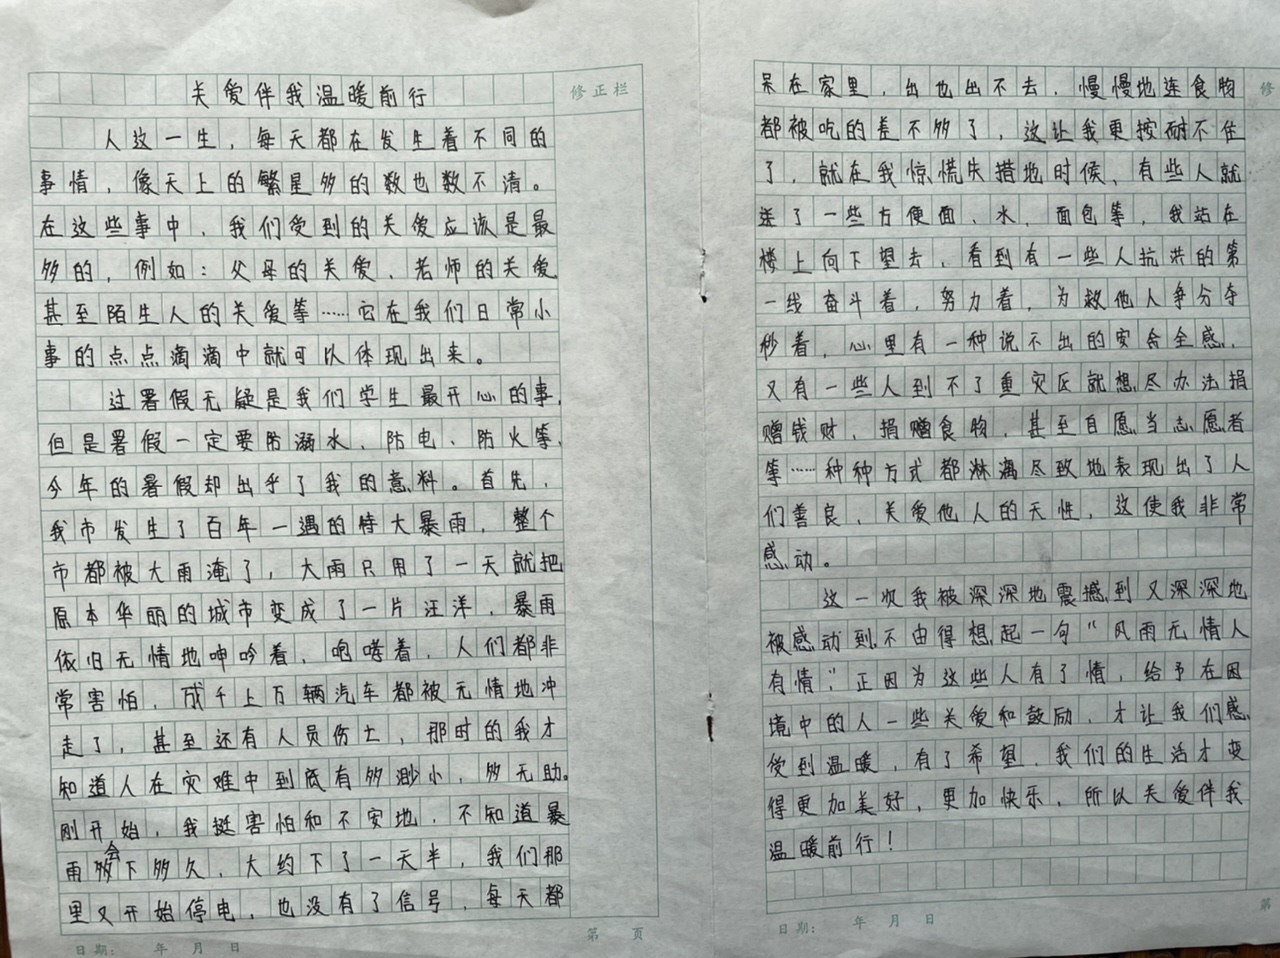 关爱伴我温暖前行
修正栏
人这一生，每天都在发生着不同的
事情，像天上的繁星多的数也数不清。
在这些事中，我们受到的关爱应该是最
多的，例如：父母的关爱、老师的关爱
甚至陌生人的关爱等……它在我们日常小
事的点点滴滴中就可以体现出来。
过署假无疑是我们学生最开心的事，
但是署假一定要防溺水、防电、防火等，
今年的署假却出乎了我的意料。首先，
我市发生了百年一遇的特大暴雨，整个
市都被大雨淹了，大雨只用了一天就把
原本华丽的城市变成了一片汪洋，暴雨
依旧无情地呻吟着，咆哮着，人们都非
常害怕，成千上万辆汽车都被无情地冲
走了，甚至还有人员伤亡，那时的我才
知道人在灾难中到底有多渺小，多无助。
刚开始，我挺害怕和不安地，不知道暴
雨会下多久，大约下了一天半，我们那
里又开始停电，也没有了信号，每天都
日期： 年 月 日
第 页
呆在家里，出也出不去，慢慢地连食物
修
都被吃的差不多了，这让我更按耐不住
了，就在我惊慌失措地时候，有些人就
送了一些方便面、水、面包等，我站在
楼上向下望去，看到有一些人抗洪的第
一线奋斗着，努力着，为救他人争分夺
秒着，心里有一种说不出的安全感，
又有一些人到不了重灾区就想尽办法捐
赠钱财，捐赠食物，甚至自愿当志愿者
等……种种方式都淋漓尽致地表现出了人
们善良，关爱他人的天性，这使我非常
感动。
这一次我被深深地震撼到又深深地
被感动到不由得想起一句“风雨无情人
有情”，正因为这些人有了情，给予在困
境中的人一些关爱和鼓励，才让我们感
受到温暖，有了希望，我们的生活才变
得更加美好，更加快乐，所以关爱伴我
温暖前行！
日期： 年 月 日
第